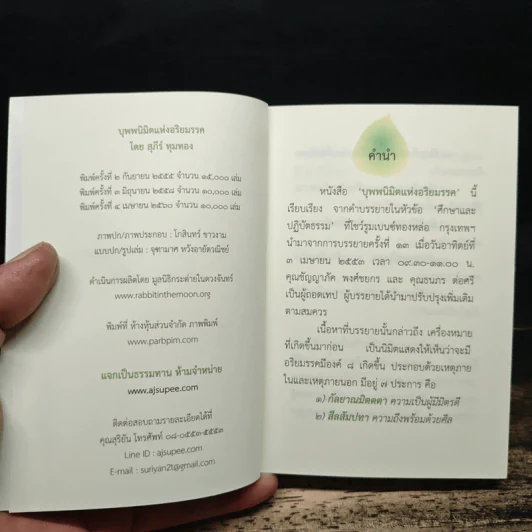 บุพพนิมิตแห่งอริยมรรค
โดย สุภีร์ ทุมทอง
พิมพ์ครั้งที่ ๒ กันยายน ๒๕๕๕ จำนวน ๑๕,๐๐๐ เล่ม
พิมพ์ครั้งที่ ๓ มิถุนายน ๒๕๕๘ จำนวน ๑๐,๐๐๐ เล่ม
พิมพ์ครั้งที่ ๔ เมษายน ๒๕๖๐ จำนวน ๑๐,๐๐๐ เล่ม
ภาพปก/ภาพประกอบ : โกสินทร์ ขาวงาม
แบบปก/รูปเล่ม : จุฑามาศ หวังอายัตวณิชย์
ดำเนินการผลิตโดย มูลนิธิกระต่ายในดวงจันทร์
www.rabbitinthemoon.org
พิมพ์ที่ ห้างหุ้นส่วนจำกัด ภาพพิมพ์
www.parbpim.com
แจกเป็นธรรมทาน ห้ามจำหน่าย
www.ajsupee.com
ติดต่อสอบถามรายละเอียดได้ที่
คุณสุริยัน โทรศัพท์ ๐๘-๐๕๕๓-๕๕๕๓
Line ID : ajsupee.com
E-mail : suriyan2t@gmail.com
คำนำ
หนังสือ ‘บุพพนิมิตแห่งอริยมรรค’ นี้
เรียบเรียง จากคำบรรยายในหัวข้อ ‘ศึกษาและ
ปฏิบัติธรรม’ ที่โชว์รูมเบนซ์ทองหล่อ กรุงเทพฯ
นำมาจากการบรรยายครั้งที่ ๑๓ เมื่อวันอาทิตย์ที่
๓ เมษายน ๒๕๕๓ เวลา ๐๙.๓๐-๑๑.๐๐ น.
คุณชัญญาภัค พงศ์ชยกร และ คุณธนภร ต่อศรี
เป็นผู้ถอดเทป ผู้บรรยายได้นำมาปรับปรุงเพิ่มเติม
ตามสมควร
เนื้อหาที่บรรยายนั้นกล่าวถึง เครื่องหมาย
ที่เกิดขึ้นมาก่อน เป็นนิมิตแสดงให้เห็นว่าจะมี
อริยมรรคมีองค์ ๘ เกิดขึ้น ประกอบด้วยเหตุภาย
ในและเหตุภายนอก มีอยู่ ๗ ประการ คือ
๑) กัลยาณมิตตตา ความเป็นผู้มีมิตรดี
๒) สีลสัมปทา ความถึงพร้อมด้วยศีล